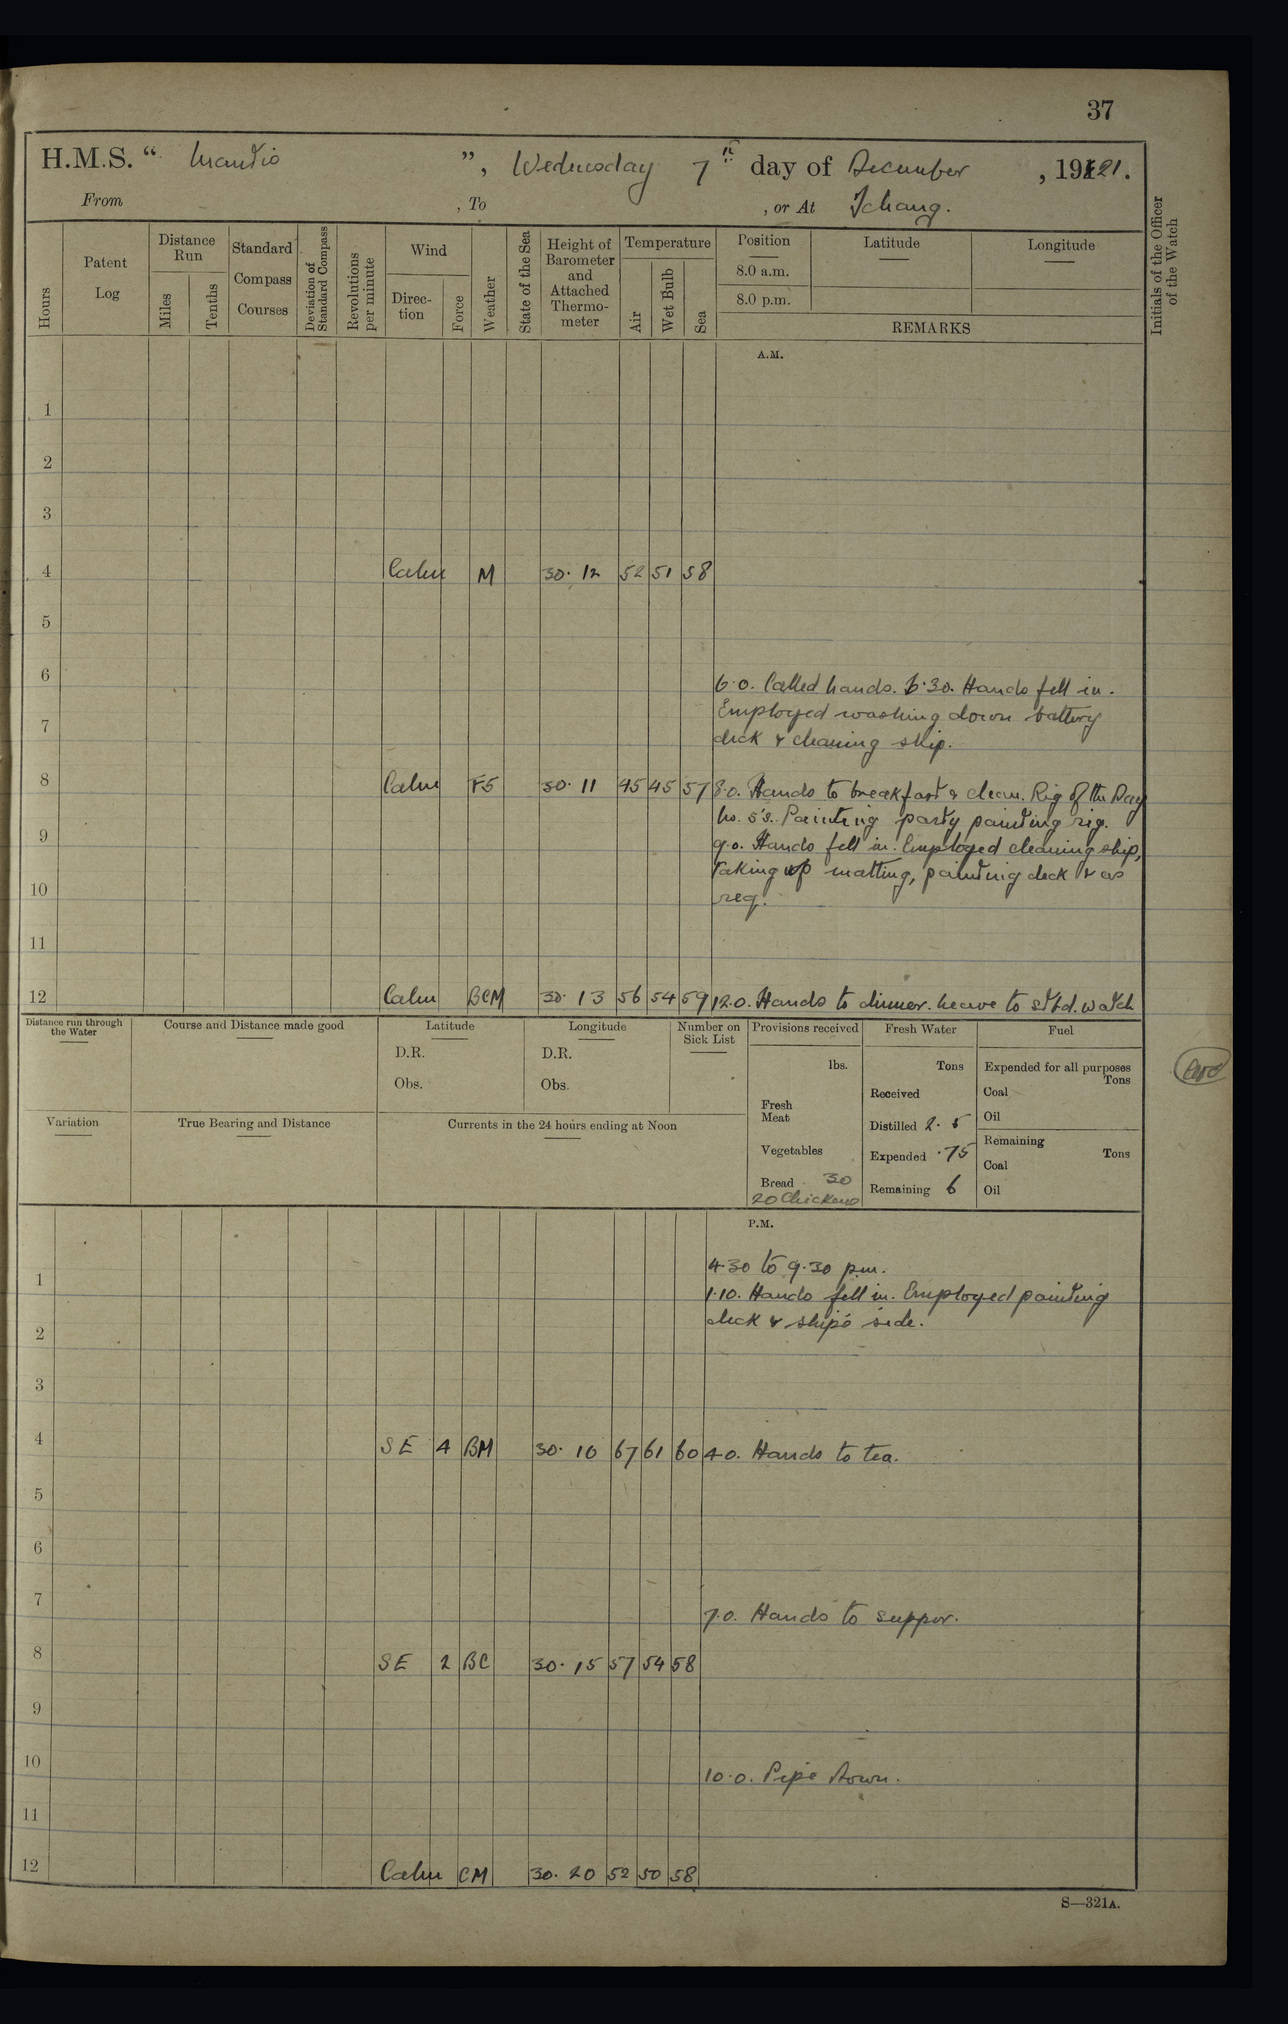 37
H.M.S. “ Mantis ”, Wednesday 7th day of December, 1921.
From , To , or At Ichang.
Hours
Patent Log
Distance Run
Miles
Tenths
Standard Compass Courses
Deviation of Standard Compass
Revolutions per minute
Wind
Direction
Force
Weather
State of the Sea
Height of Barometer and Attached Thermometer
Temperature
Air
Wet Bulb
Sea
Position
8.0 a.m.
8.0 p.m.
Latitude
Longitude
REMARKS
Initials of the Officer of the Watch
A.M.
1
2
3
4 Calm M 30.12 52 51 58
5
6
6.0. Called hands. 6.30. Hands fell in.
Employed washing down battery
7
deck & cleaning ship.
8 Calm F5 30.11 45 45 57 8.0. Hands to breakfast & clean. Rig of the Day
No. 5's. Painting party painting rig.
9
9.0. Hands fell in. Employed cleaning ship,
taking up matting, painting deck & as
10
req.
11
12 Calm BCM 30.13 56 54 59 12.0. Hands to dinner. Leave to stbd. watch
Distance run through the Water
Course and Distance made good
Latitude
D.R.
Obs.
Longitude
D.R.
Obs.
Number on Sick List
Provisions received
lbs.
Fresh Meat
Vegetables
Bread 30
20 Chickens
Fresh Water
Tons
Received
Distilled 2.5
Expended .75
Remaining 6
Fuel
Expended for all purposes
Tons
Coal
Oil
Remaining
Tons
Coal
Oil
Variation
True Bearing and Distance
Currents in the 24 hours ending at Noon
P.M.
4.30 to 9.30 p.m.
1
1.10. Hands fell in. Employed painting
deck & ship's side.
2
3
4 SE 4 BM 30.10 67 61 60 4.0. Hands to tea.
5
6
7
7.0. Hands to supper.
8 SE 2 BC 30.15 57 54 58
9
10
10.0. Pipe Down.
11
12 Calm CM 30.20 52 50 58
S—321A.